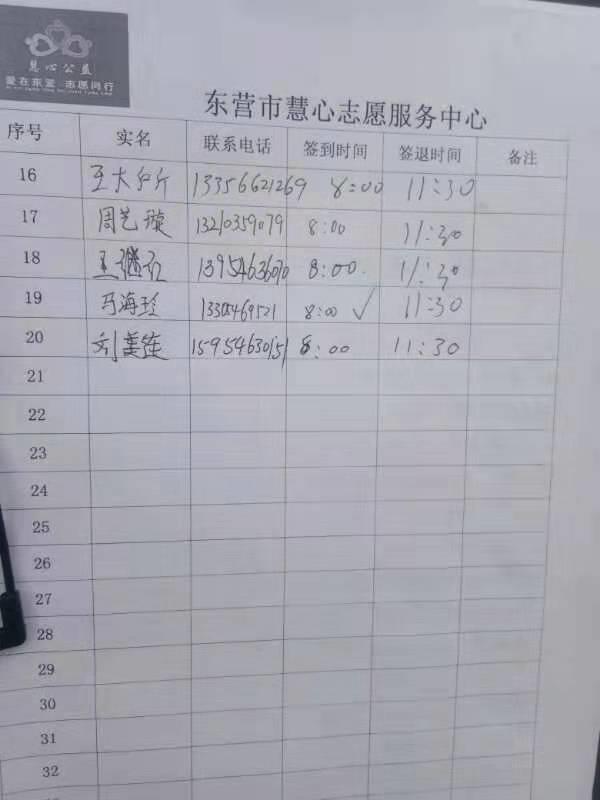 慧心公益
爱在东营 志愿同行
东营市慧心志愿服务中心
序号 实名 联系电话 签到时间 签退时间 备注
16 13356621269 8:00 11:30
17 周艺璇 13210359079 8:00 11:30
18 13954636070 8:00. 11:30
19 马海珍 8:00 ✓ 11:30
20 15954630151 8:00 11:30
21
22
23
24
25
26
27
28
29
30
31
32